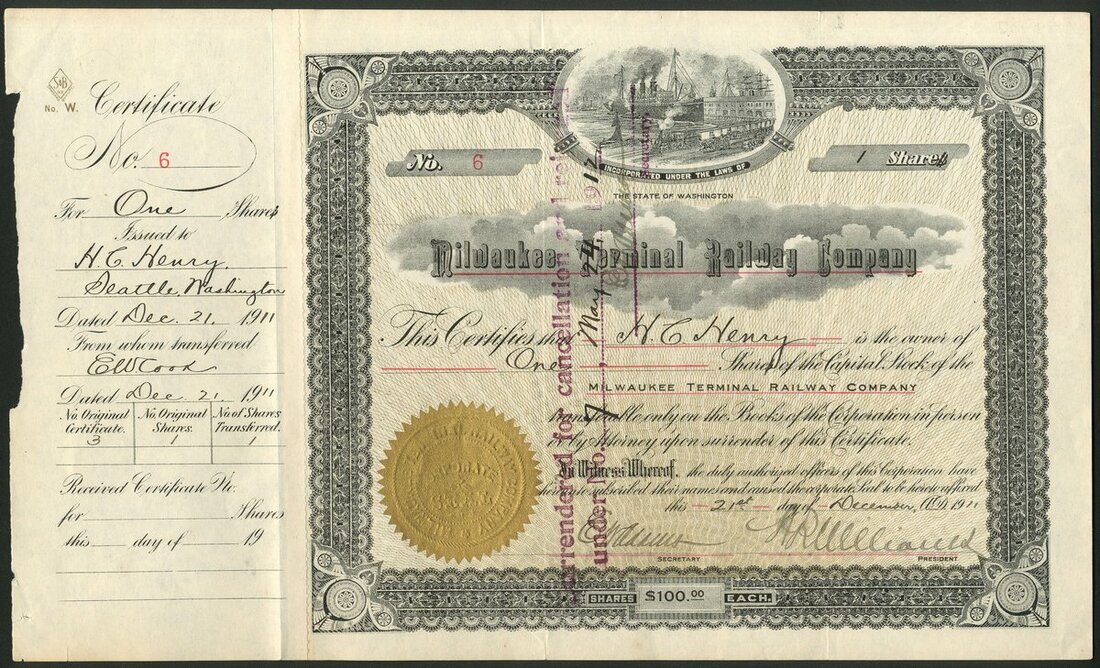 S&B
No. W.
Certificate
No. 6
For One Shares
Issued to
H.C. Henry,
Seattle, Washington
Dated Dec. 21, 1911
From whom transferred
E W Cook
Dated Dec. 21, 1911
No. Original Certificate. No. Original Shares. No of Shares Transferred.
3 1 1
Received Certificate No.
for Shares
this day of 19
No. 6
1 Share
INCORPORATED UNDER THE LAWS OF
THE STATE OF WASHINGTON
Milwaukee Terminal Railway Company
This Certifies that H. C. Henry is the owner of
One Shares of the Capital Stock of the
MILWAUKEE TERMINAL RAILWAY COMPANY
transferable only on the Books of the Corporation in person
or by Attorney upon surrender of this Certificate.
In Witness Whereof, the duly authorized officers of this Corporation have
hereunto subscribed their names and caused the corporate Seal to be hereto affixed
this 21st day of December, A.D. 1911
SECRETARY
PRESIDENT
SHARES $100.00 EACH.
Surrendered for cancellation and
under No. 7, May 24, 1912
Secretary.